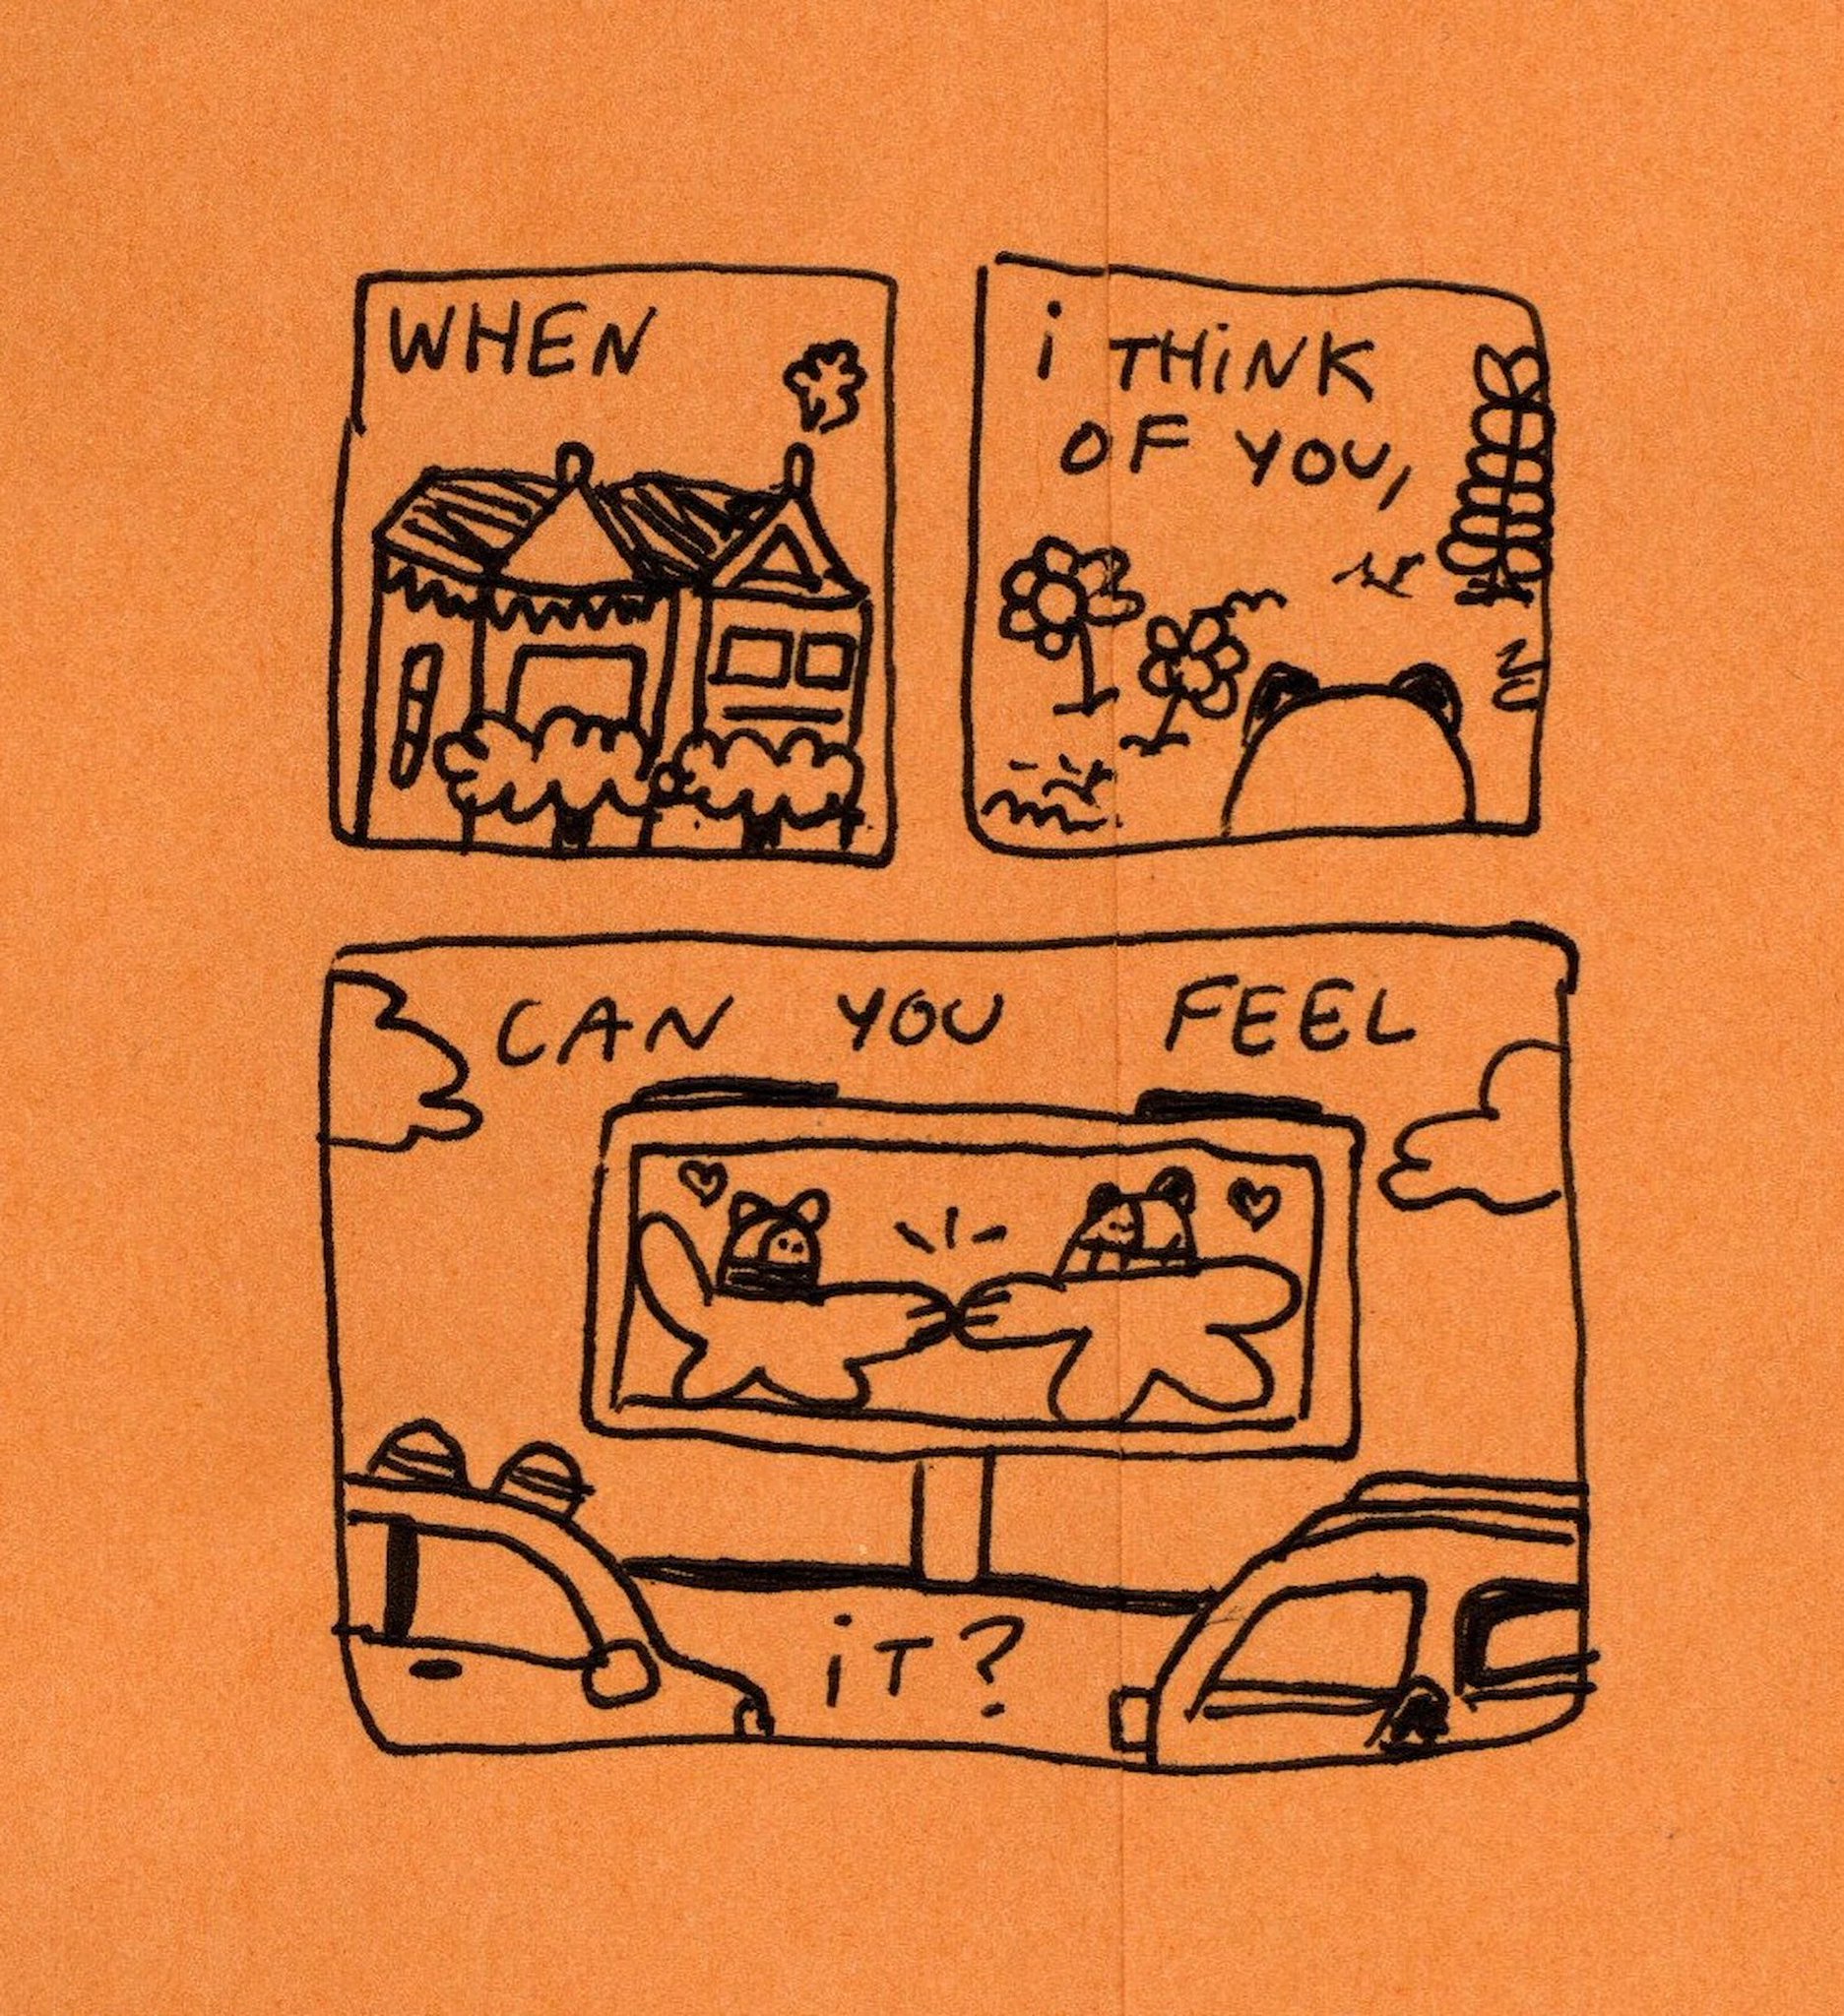 WHEN
i THiNK
OF YOU,
CAN YOU FEEL
iT?